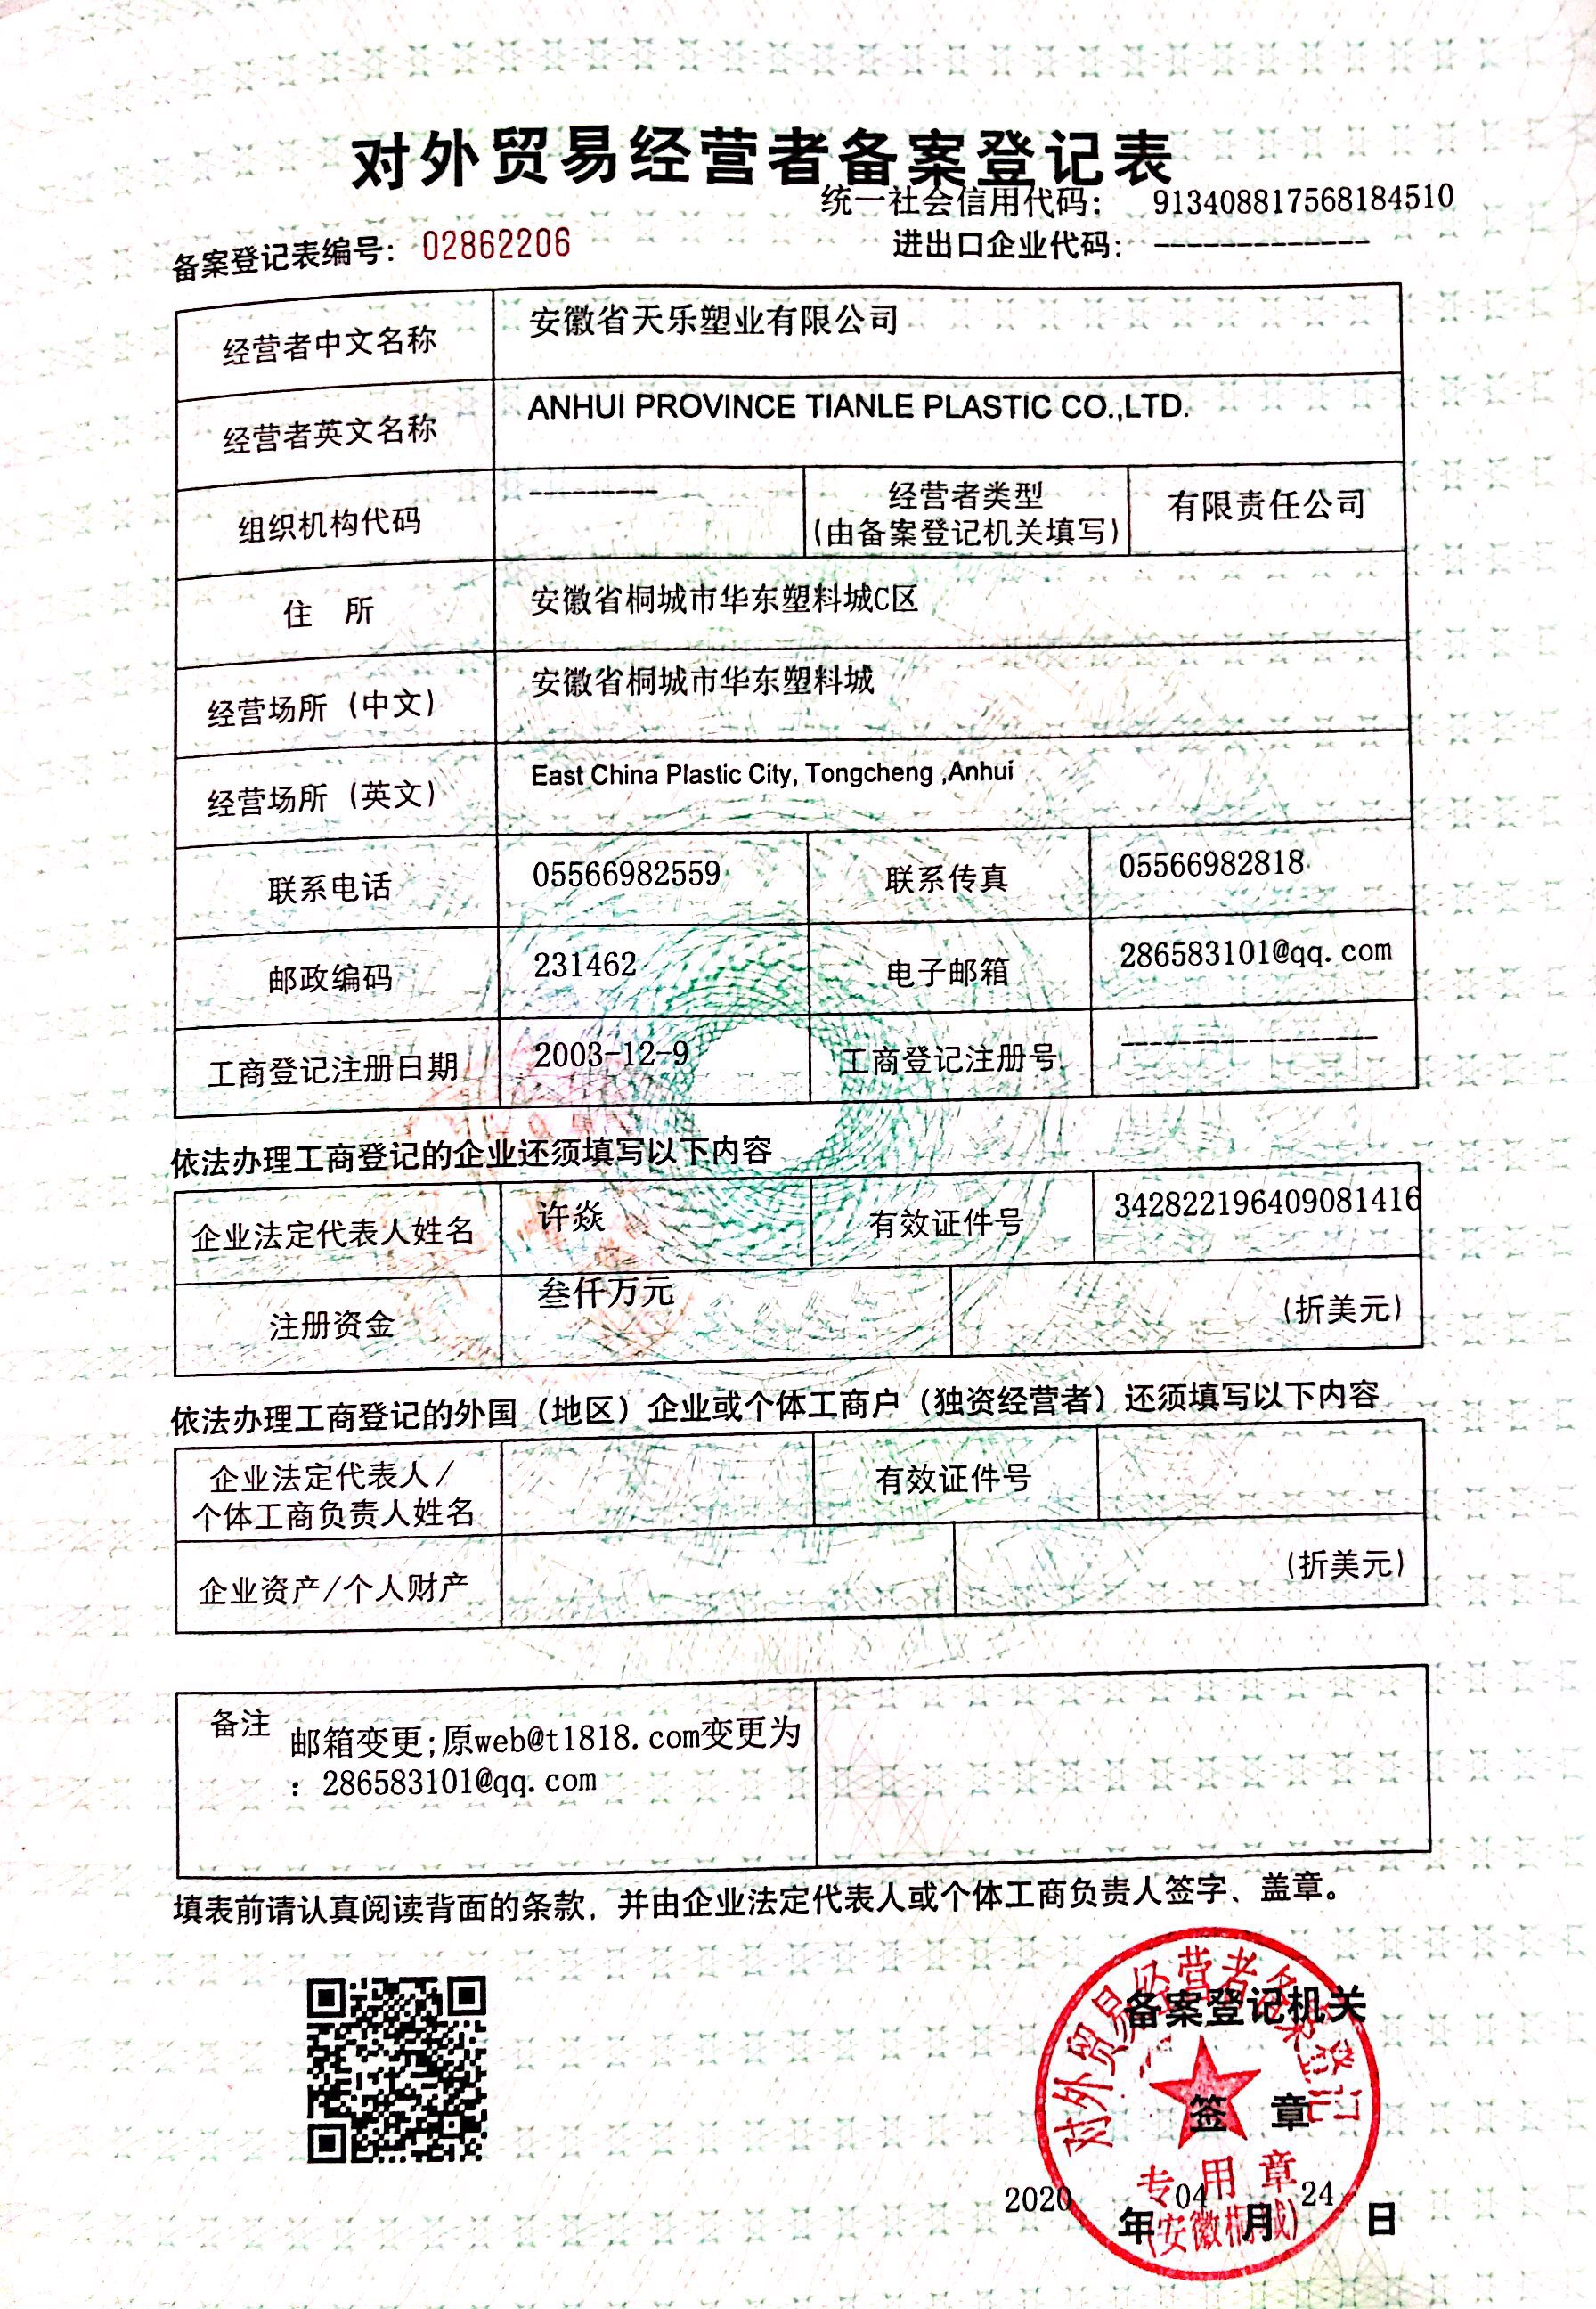 对外贸易经营者备案登记表
统一社会信用代码： 913408817568184510
备案登记表编号：02862206
进出口企业代码：-------------
经营者中文名称 安徽省天乐塑业有限公司
经营者英文名称 ANHUI PROVINCE TIANLE PLASTIC CO.,LTD.
组织机构代码 --------- 经营者类型 有限责任公司
(由备案登记机关填写)
住 所 安徽省桐城市华东塑料城C区
经营场所（中文） 安徽省桐城市华东塑料城
经营场所（英文） East China Plastic City, Tongcheng ,Anhui
联系电话 05566982559 联系传真 05566982818
邮政编码 231462 电子邮箱 286583101@qq.com
工商登记注册日期 2003-12-9 工商登记注册号 ------------------
依法办理工商登记的企业还须填写以下内容
企业法定代表人姓名 许焱 有效证件号 342822196409081416
注册资金 叁仟万元 (折美元)
依法办理工商登记的外国（地区）企业或个体工商户（独资经营者）还须填写以下内容
企业法定代表人/ 有效证件号
个体工商负责人姓名
企业资产/个人财产 (折美元)
备注 邮箱变更;原web@t1818.com变更为
：286583101@qq.com
填表前请认真阅读背面的条款，并由企业法定代表人或个体工商负责人签字、盖章。
对外贸易经营者备案登记
备案登记机关
签 章
专用章
2020 年 04 月 24 日
(安徽桐城)